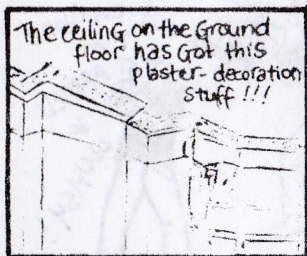 The ceiling on the Ground
floor has Got this
plaster-decoration
stuff !!!